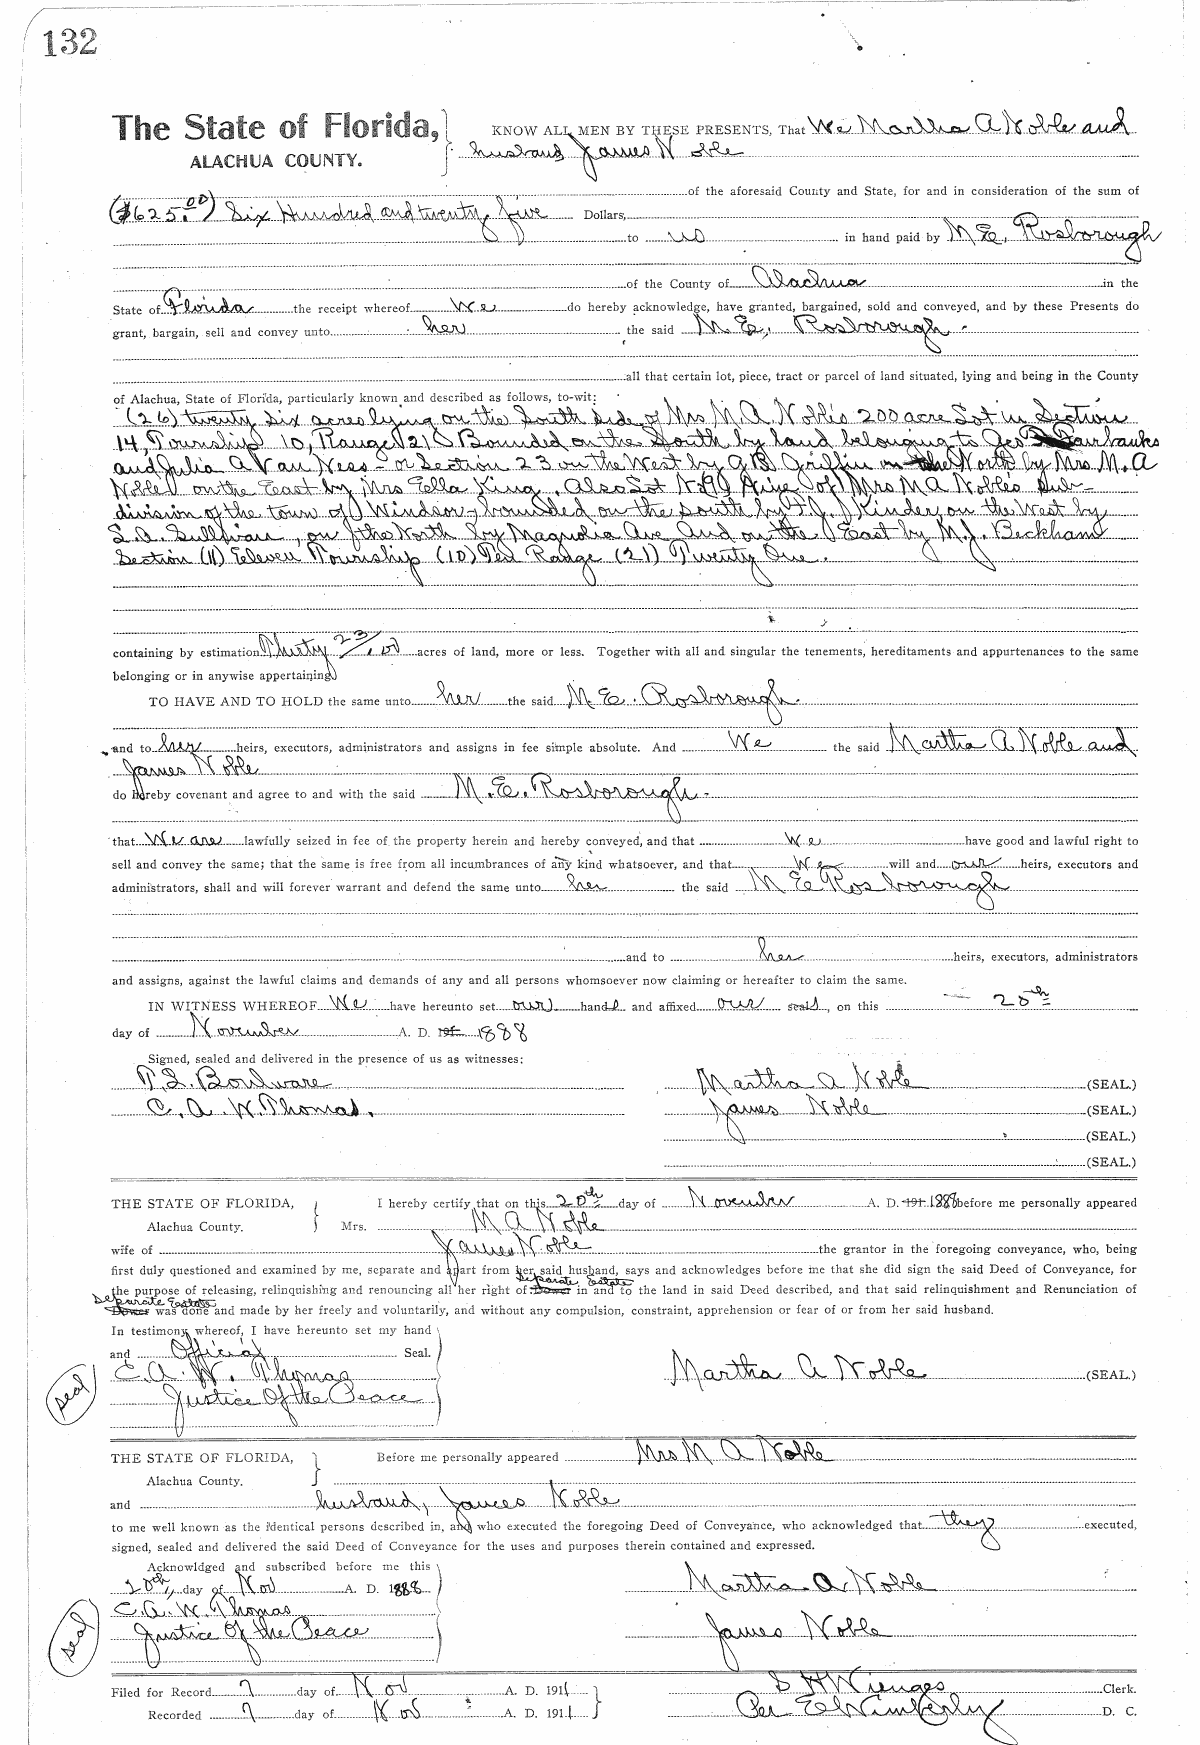 132
The State of Florida,
ALACHUA COUNTY.
KNOW ALL MEN BY THESE PRESENTS, That We Martha A Noble and
husband James Noble
of the aforesaid County and State, for and in consideration of the sum of
($625.00) Six Hundred and twenty five Dollars,
to us in hand paid by M. E. Rosborough
of the County of Alachua in the
State of Florida the receipt whereof We do hereby acknowledge, have granted, bargained, sold and conveyed, and by these Presents do
grant, bargain, sell and convey unto her the said M. E. Rosborough.
all that certain lot, piece, tract or parcel of land situated, lying and being in the County
of Alachua, State of Florida, particularly known and described as follows, to-wit:
(26) twenty six acres lying on the South side of Mrs M. A. Noble's 200 acre Lot in Section
14, Township 10, Range 21 S Bounded on the South by land belonging to Geo Fairbanks
and Julia A Van Ness - or Section 23 on the West by G. B. Griffin on the North by Mrs. M. A
Noble on the East by Mrs Ella King. Also Lot No (9) Nine of Mrs M A Nobles Sub-
division of the town of Windsor, bounded on the South by J. Kinder, on the West by
S. A. Sullivan, on the North by Magnolia Ave and on the East by M. J. Beckham
Section (11) Eleven Township (10) Ten Range (21) Twenty One.
containing by estimation Thirty 23/100 acres of land, more or less. Together with all and singular the tenements, hereditaments and appurtenances to the same
belonging or in anywise appertaining
TO HAVE AND TO HOLD the same unto her the said M. E. Rosborough.
and to her heirs, executors, administrators and assigns in fee simple absolute. And We the said Martha A Noble and
James Noble
do hereby covenant and agree to and with the said M. E. Rosborough.
that We are lawfully seized in fee of the property herein and hereby conveyed, and that We have good and lawful right to
sell and convey the same; that the same is free from all incumbrances of any kind whatsoever, and that We will and our heirs, executors and
administrators, shall and will forever warrant and defend the same unto her the said M E Rosborough
and to her heirs, executors, administrators
and assigns, against the lawful claims and demands of any and all persons whomsoever now claiming or hereafter to claim the same.
IN WITNESS WHEREOF We have hereunto set our hands and affixed our seals, on this 20th
day of November A. D. 191 1888
Signed, sealed and delivered in the presence of us as witnesses:
T. S. Boulware Martha A Noble (SEAL.)
C. A. W. Thomas. James Noble (SEAL.)
(SEAL.)
(SEAL.)
THE STATE OF FLORIDA, I hereby certify that on this 20th day of November A. D. 191 1888 before me personally appeared
Alachua County. Mrs. M A Noble
wife of James Noble the grantor in the foregoing conveyance, who, being
first duly questioned and examined by me, separate and apart from her said husband, says and acknowledges before me that she did sign the said Deed of Conveyance, for
Separate Estate
the purpose of releasing, relinquishing and renouncing all her right of Dower in and to the land in said Deed described, and that said relinquishment and Renunciation of
Separate Estate
Dower was done and made by her freely and voluntarily, and without any compulsion, constraint, apprehension or fear of or from her said husband.
In testimony whereof, I have hereunto set my hand
and Official Seal.
seal C. A. W. Thomas Martha A Noble (SEAL.)
Justice Of the Peace
THE STATE OF FLORIDA, Before me personally appeared Mrs M A Noble
Alachua County.
and husband, James Noble
to me well known as the identical persons described in, and who executed the foregoing Deed of Conveyance, who acknowledged that they executed,
signed, sealed and delivered the said Deed of Conveyance for the uses and purposes therein contained and expressed.
Acknowldged and subscribed before me this
20th, day of Nov A. D. 1888 Martha A Noble
C. A. W. Thomas
seal Justice Of the Peace James Noble
Filed for Record 7 day of Nov A. D. 1911 S H Wienges Clerk.
Recorded 7 day of Nov A. D. 1911 Per E Wimberly D. C.